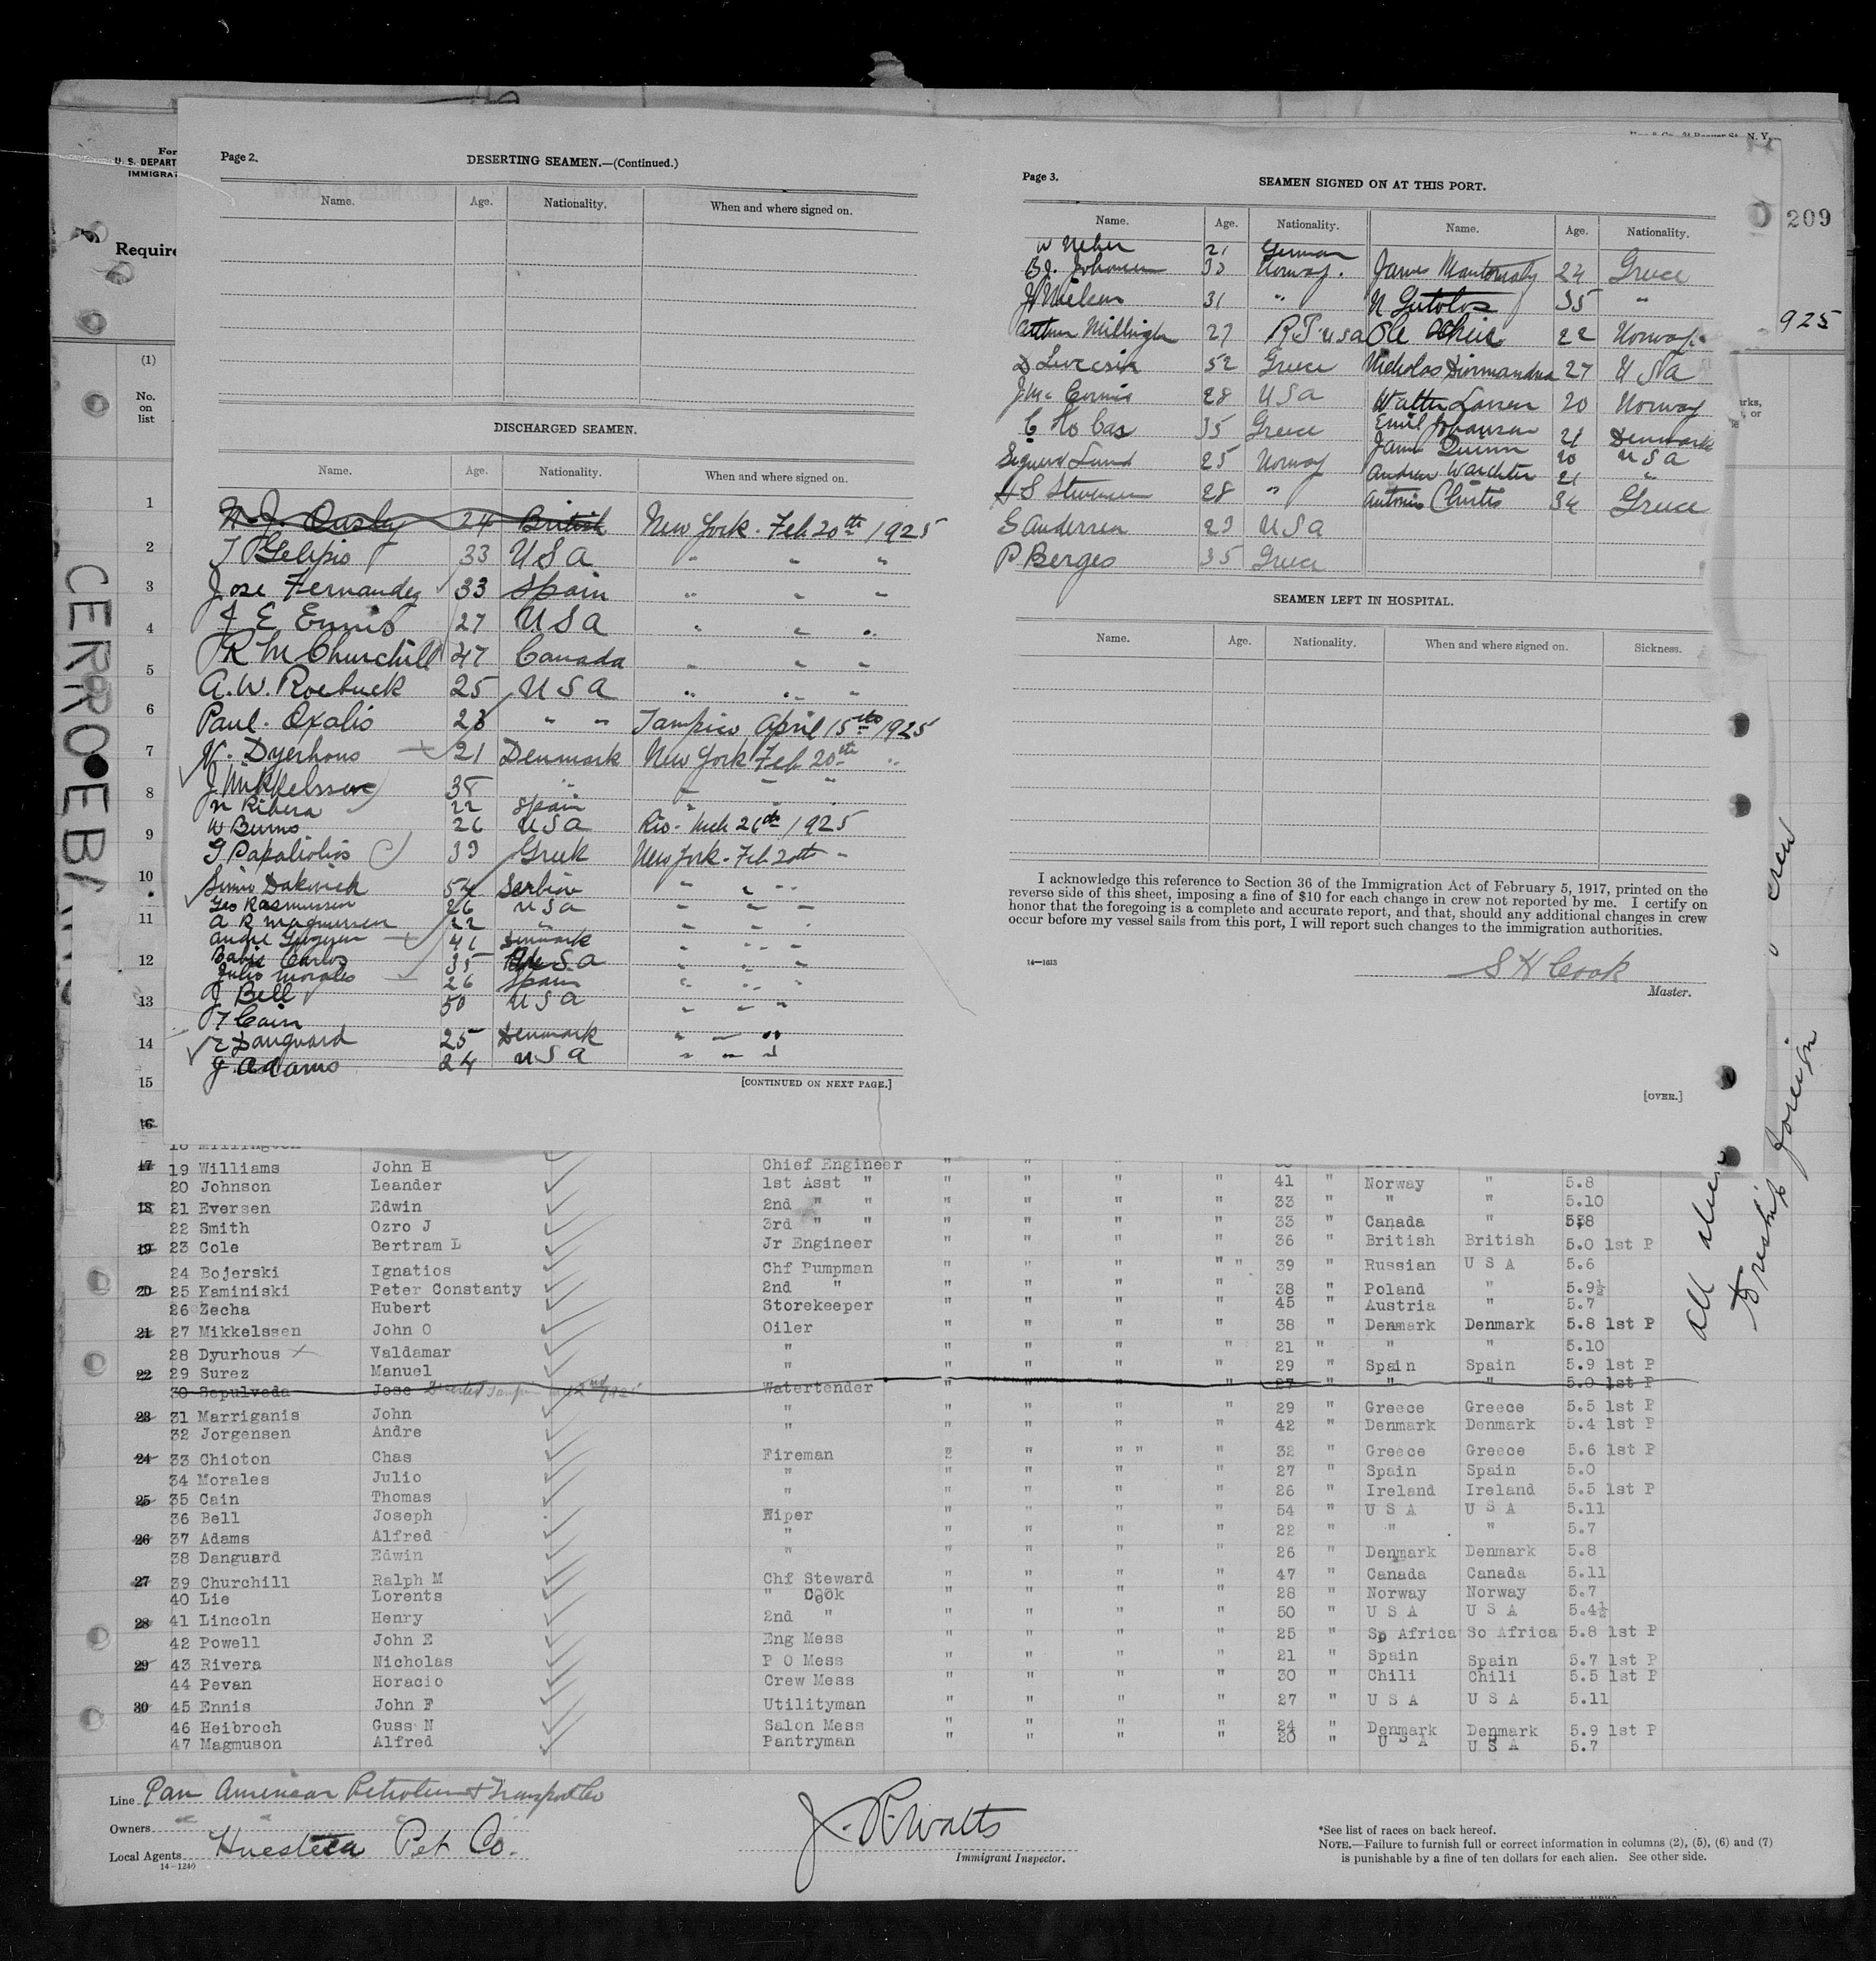 For
U. S. DEPART
IMMIGRAT
Require
(1)
No.
on
list
CERRO EB
209
925
N. Y.
Page 2.
DESERTING SEAMEN.—(Continued.)
Name. Age. Nationality. When and where signed on.
DISCHARGED SEAMEN.
Name. Age. Nationality. When and where signed on.
24 British New York. Feb 20th 1925
33 USA " " "
Jose Fernandez 33 Spain " " "
J E Ennis 27 USA " " "
R M Churchill 47 Canada " " "
A. W. Roebuck 25 USA " " "
Paul Oxalis 28 " " Tampico April 15th 1925
V. Dyerhous 21 Denmark New York Feb 20th "
J Mikkelssen 38 " " " "
N Ribera 22 Spain "
W Burns 26 USA Rio. Mch 26th 1925
G Papaliolios 39 Greek New York. Feb 20th "
Dakovich 54 Serbian " " "
Geo Rasmussen 26 USA " " "
A R Magnussen 22 " " " "
Andre 41 Denmark " " "
Carlos 35 USA " " "
Julio Morales 26 Spain " " "
J Bell 50 USA " " "
T Cain
E Danguard 25 Denmark " " "
J. Adams 24 USA " " "
[CONTINUED ON NEXT PAGE.]
Page 3.
SEAMEN SIGNED ON AT THIS PORT.
Name. Age. Nationality. Name. Age. Nationality.
W Neber 21 German
B.J. Johansen 32 Norway. James 24 Greece
J Nielsen 31 " N 35 "
Arthur Millington 27 USA Ole 22 Norway.
52 Greece Nicholas 27 USA
28 USA Walter Larsen 20 Norway
35 Greece Emil Johansen 21 Denmark
Sigurd Lund 25 Norway James Quinn 20 USA
Andrew 21 "
H S 28 " Antonio 34 Greece
E Andersen 23 USA
P Berges 35 Greece
SEAMEN LEFT IN HOSPITAL.
Name. Age. Nationality. When and where signed on. Sickness.
I acknowledge this reference to Section 36 of the Immigration Act of February 5, 1917, printed on the
reverse side of this sheet, imposing a fine of $10 for each change in crew not reported by me. I certify on
honor that the foregoing is a complete and accurate report, and that, should any additional changes in crew
occur before my vessel sails from this port, I will report such changes to the immigration authorities.
14—1613
S H Cook
Master.
[OVER.]
1
2
3
4
5
6
7
8
9
10
11
12
13
14
15
16
17 19 Williams John H Chief Engineer " " " "
20 Johnson Leander 1st Asst " " " " " 41 " Norway " 5.8
18 21 Eversen Edwin 2nd " " " " " " 33 " " " 5.10
22 Smith Ozro J 3rd " " " " " " 33 " Canada " 5.8
19 23 Cole Bertram L Jr Engineer " " " " 36 " British British 5.0 1st P
24 Bojerski Ignatios Chf Pumpman " " " " " 39 " Russian U S A 5.6
20 25 Kaminiski Peter Constanty 2nd " " " " " 38 " Poland " 5.9½
26 Zecha Hubert Storekeeper " " " " 45 " Austria " 5.7
21 27 Mikkelssen John O Oiler " " " " 38 " Denmark Denmark 5.8 1st P
28 Dyurhous Valdamar " " " " " 21 " " " 5.10
22 29 Surez Manuel " " " " " 29 " Spain Spain 5.9 1st P
30 Sepulveda Jose Deserted 2nd 1925 Watertender " " " " 27 " " " 5.0 1st P
23 31 Marriganis John " " " " " 29 " Greece Greece 5.5 1st P
32 Jorgensen Andre " " " " " 42 " Denmark Denmark 5.4 1st P
24 33 Chioton Chas Fireman " " " " " 32 " Greece Greece 5.6 1st P
34 Morales Julio " " " " " 27 " Spain Spain 5.0
25 35 Cain Thomas " " " " " 26 " Ireland Ireland 5.5 1st P
36 Bell Joseph Wiper " " " " 54 " U S A U S A 5.11
26 37 Adams Alfred " " " " " 22 " " " 5.7
38 Danguard Edwin " " " " " 26 " Denmark Denmark 5.8
27 39 Churchill Ralph M Chf Steward " " " " 47 " Canada Canada 5.11
40 Lie Lorents " Cook " " " " 28 " Norway Norway 5.7
28 41 Lincoln Henry 2nd " " " " " 50 " U S A U S A 5.4½
42 Powell John E Eng Mess " " " " 25 " So Africa So Africa 5.8 1st P
29 43 Rivera Nicholas P O Mess " " " " 21 " Spain Spain 5.7 1st P
44 Pevan Horacio Crew Mess " " " " 30 " Chili Chili 5.5 1st P
30 45 Ennis John F Utilityman " " " " 27 " U S A U S A 5.11
46 Heibroch Guss N Salon Mess " " " " 24 " Denmark Denmark 5.9 1st P
47 Magmuson Alfred Pantryman " " " " 20 " U S A U S A 5.7
All alien crew
to reship foreign
Line Pan American Petroleum & Transport Co
Owners " " "
Local Agents Huesteca Pet Co.
14—1240
J. R Watts
Immigrant Inspector.
*See list of races on back hereof.
NOTE.—Failure to furnish full or correct information in columns (2), (5), (6) and (7)
is punishable by a fine of ten dollars for each alien. See other side.